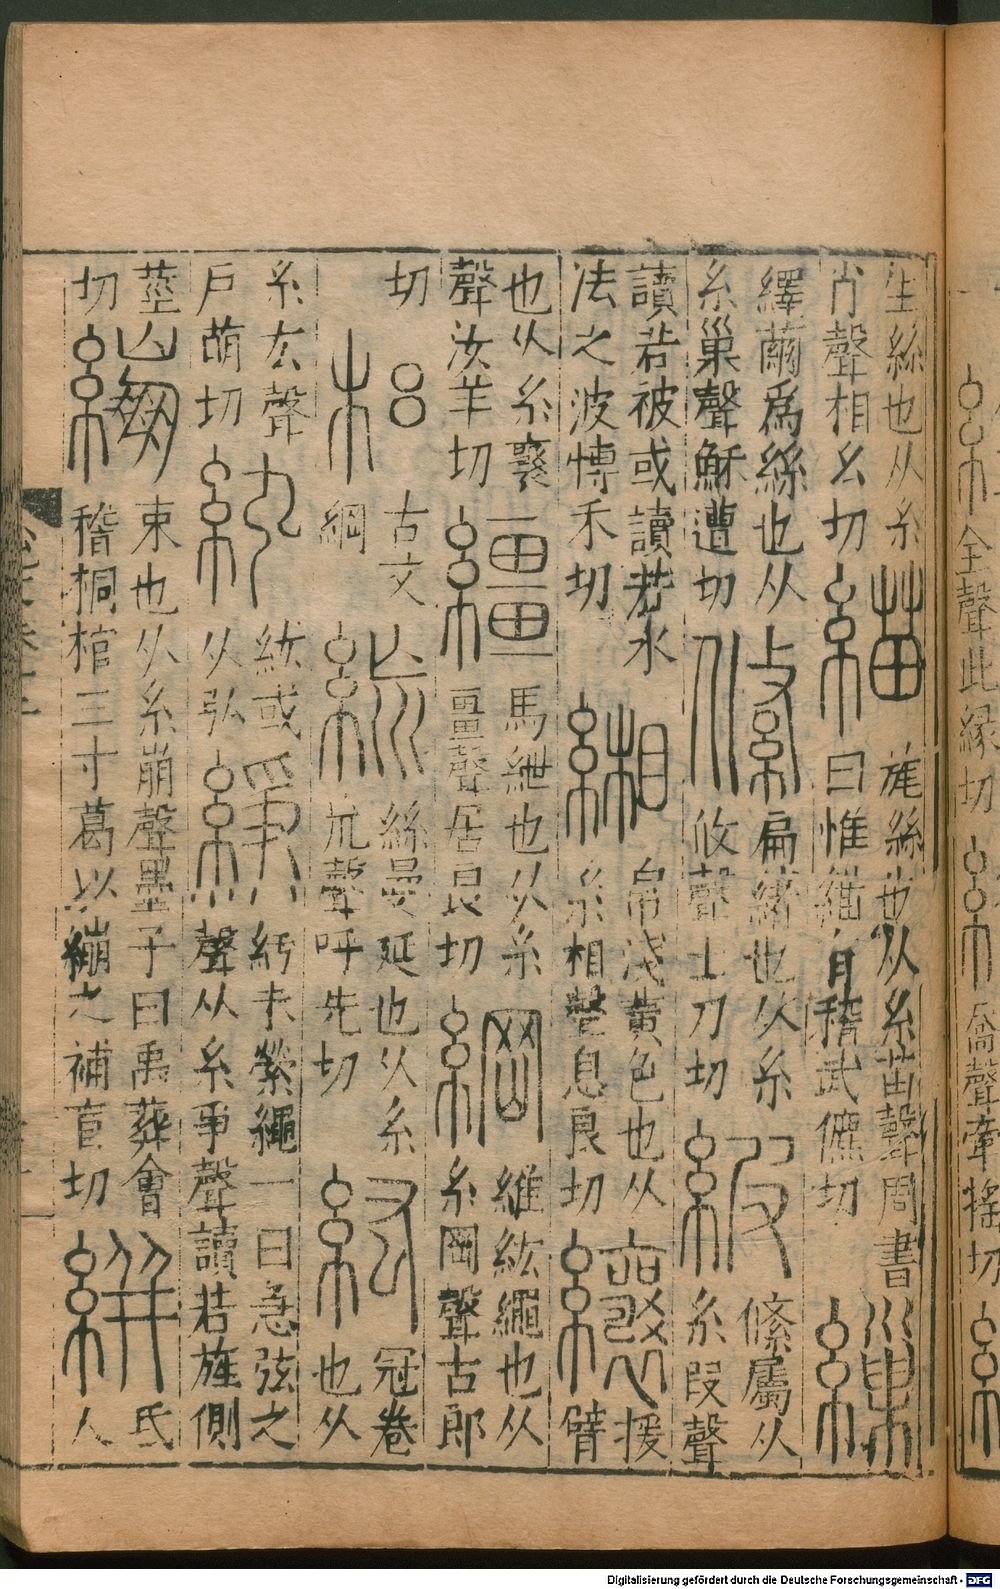 全聲此緣切
繑
喬聲牽搖切
生絲也从糸
肖聲相幺切
緢
旄絲也从糸苗聲周書
曰惟緢有稽武儦切
繅
繹繭爲絲也从
糸巢聲穌遭切
絛
扁緒也从糸
攸聲土刀切
緞
絛屬从
糸叚聲
讀若被或讀若水
法之波博禾切
緗
帛淺黃色也从
糸相聲息良切
纕
援
臂
也从糸襄
聲汝羊切
繮
馬紲也从糸
畺聲居良切
綱
維紘繩也从
糸岡聲古郎
切
古文
綱
絲曼延也从糸
㡃聲呼先切
紘
冠卷
也从
糸厷聲
戶萌切
紭
紘或
从弘
綪
紆未縈繩一曰急弦之
聲从糸爭聲讀若旌側
莖
切
繃
束也从糸崩聲墨子曰禹葬會
稽桐棺三寸葛以繃之補盲切
絣
氐
人
Digitalisierung gefördert durch die Deutsche Forschungsgemeinschaft - DFG